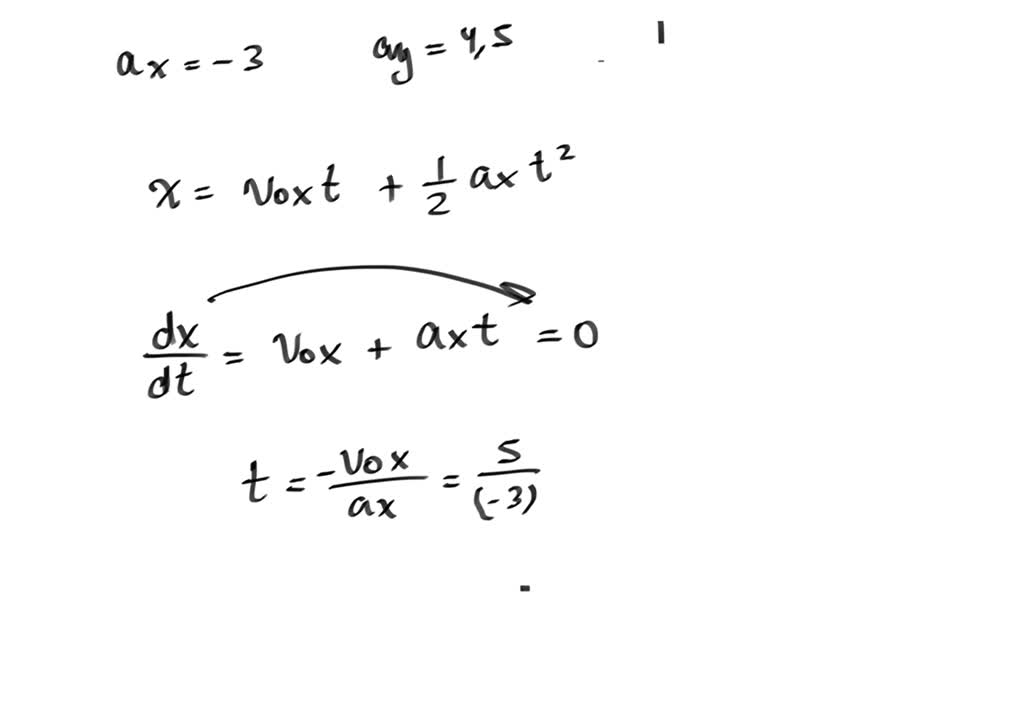 ax = -3 ay = 4,5 1
x = v0xt + 1/2 axt²
dx/dt = v0x + axt = 0
t = -v0x/ax = 5/(-3)